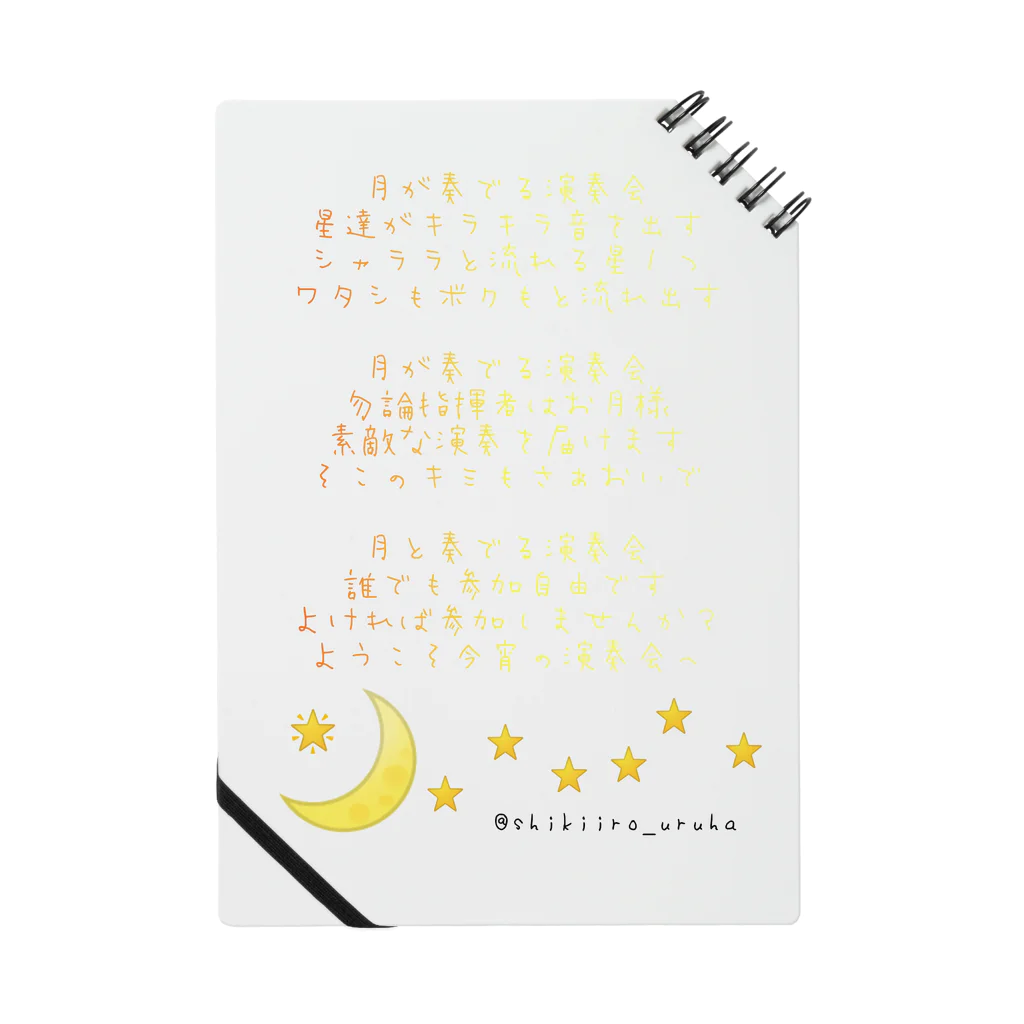 月が奏でる演奏会
星達がキラキラ音を出す
シャララと流れる星1つ
ワタシもボクもと流れ出す
月が奏でる演奏会
勿論指揮者はお月様
素敵な演奏を届けます
そこのキミもさぁおいで
月と奏でる演奏会
誰でも参加自由です
よければ参加しませんか?
ようこそ今宵の演奏会へ
@shikiiro_uruha